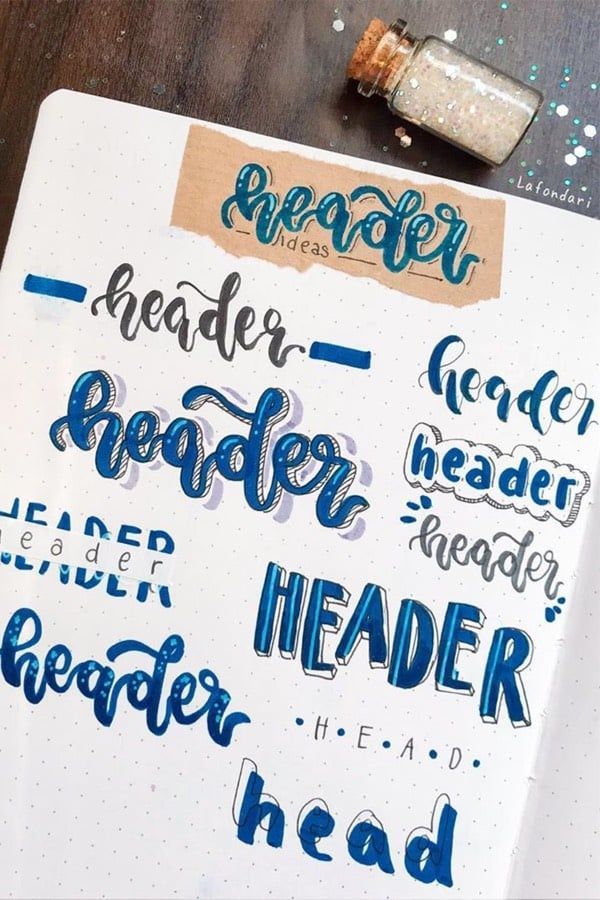 Lafondari
header
ideas
header
header
header
header
header
HEADER
header
HEADER
header
• H • E • A • D •
head